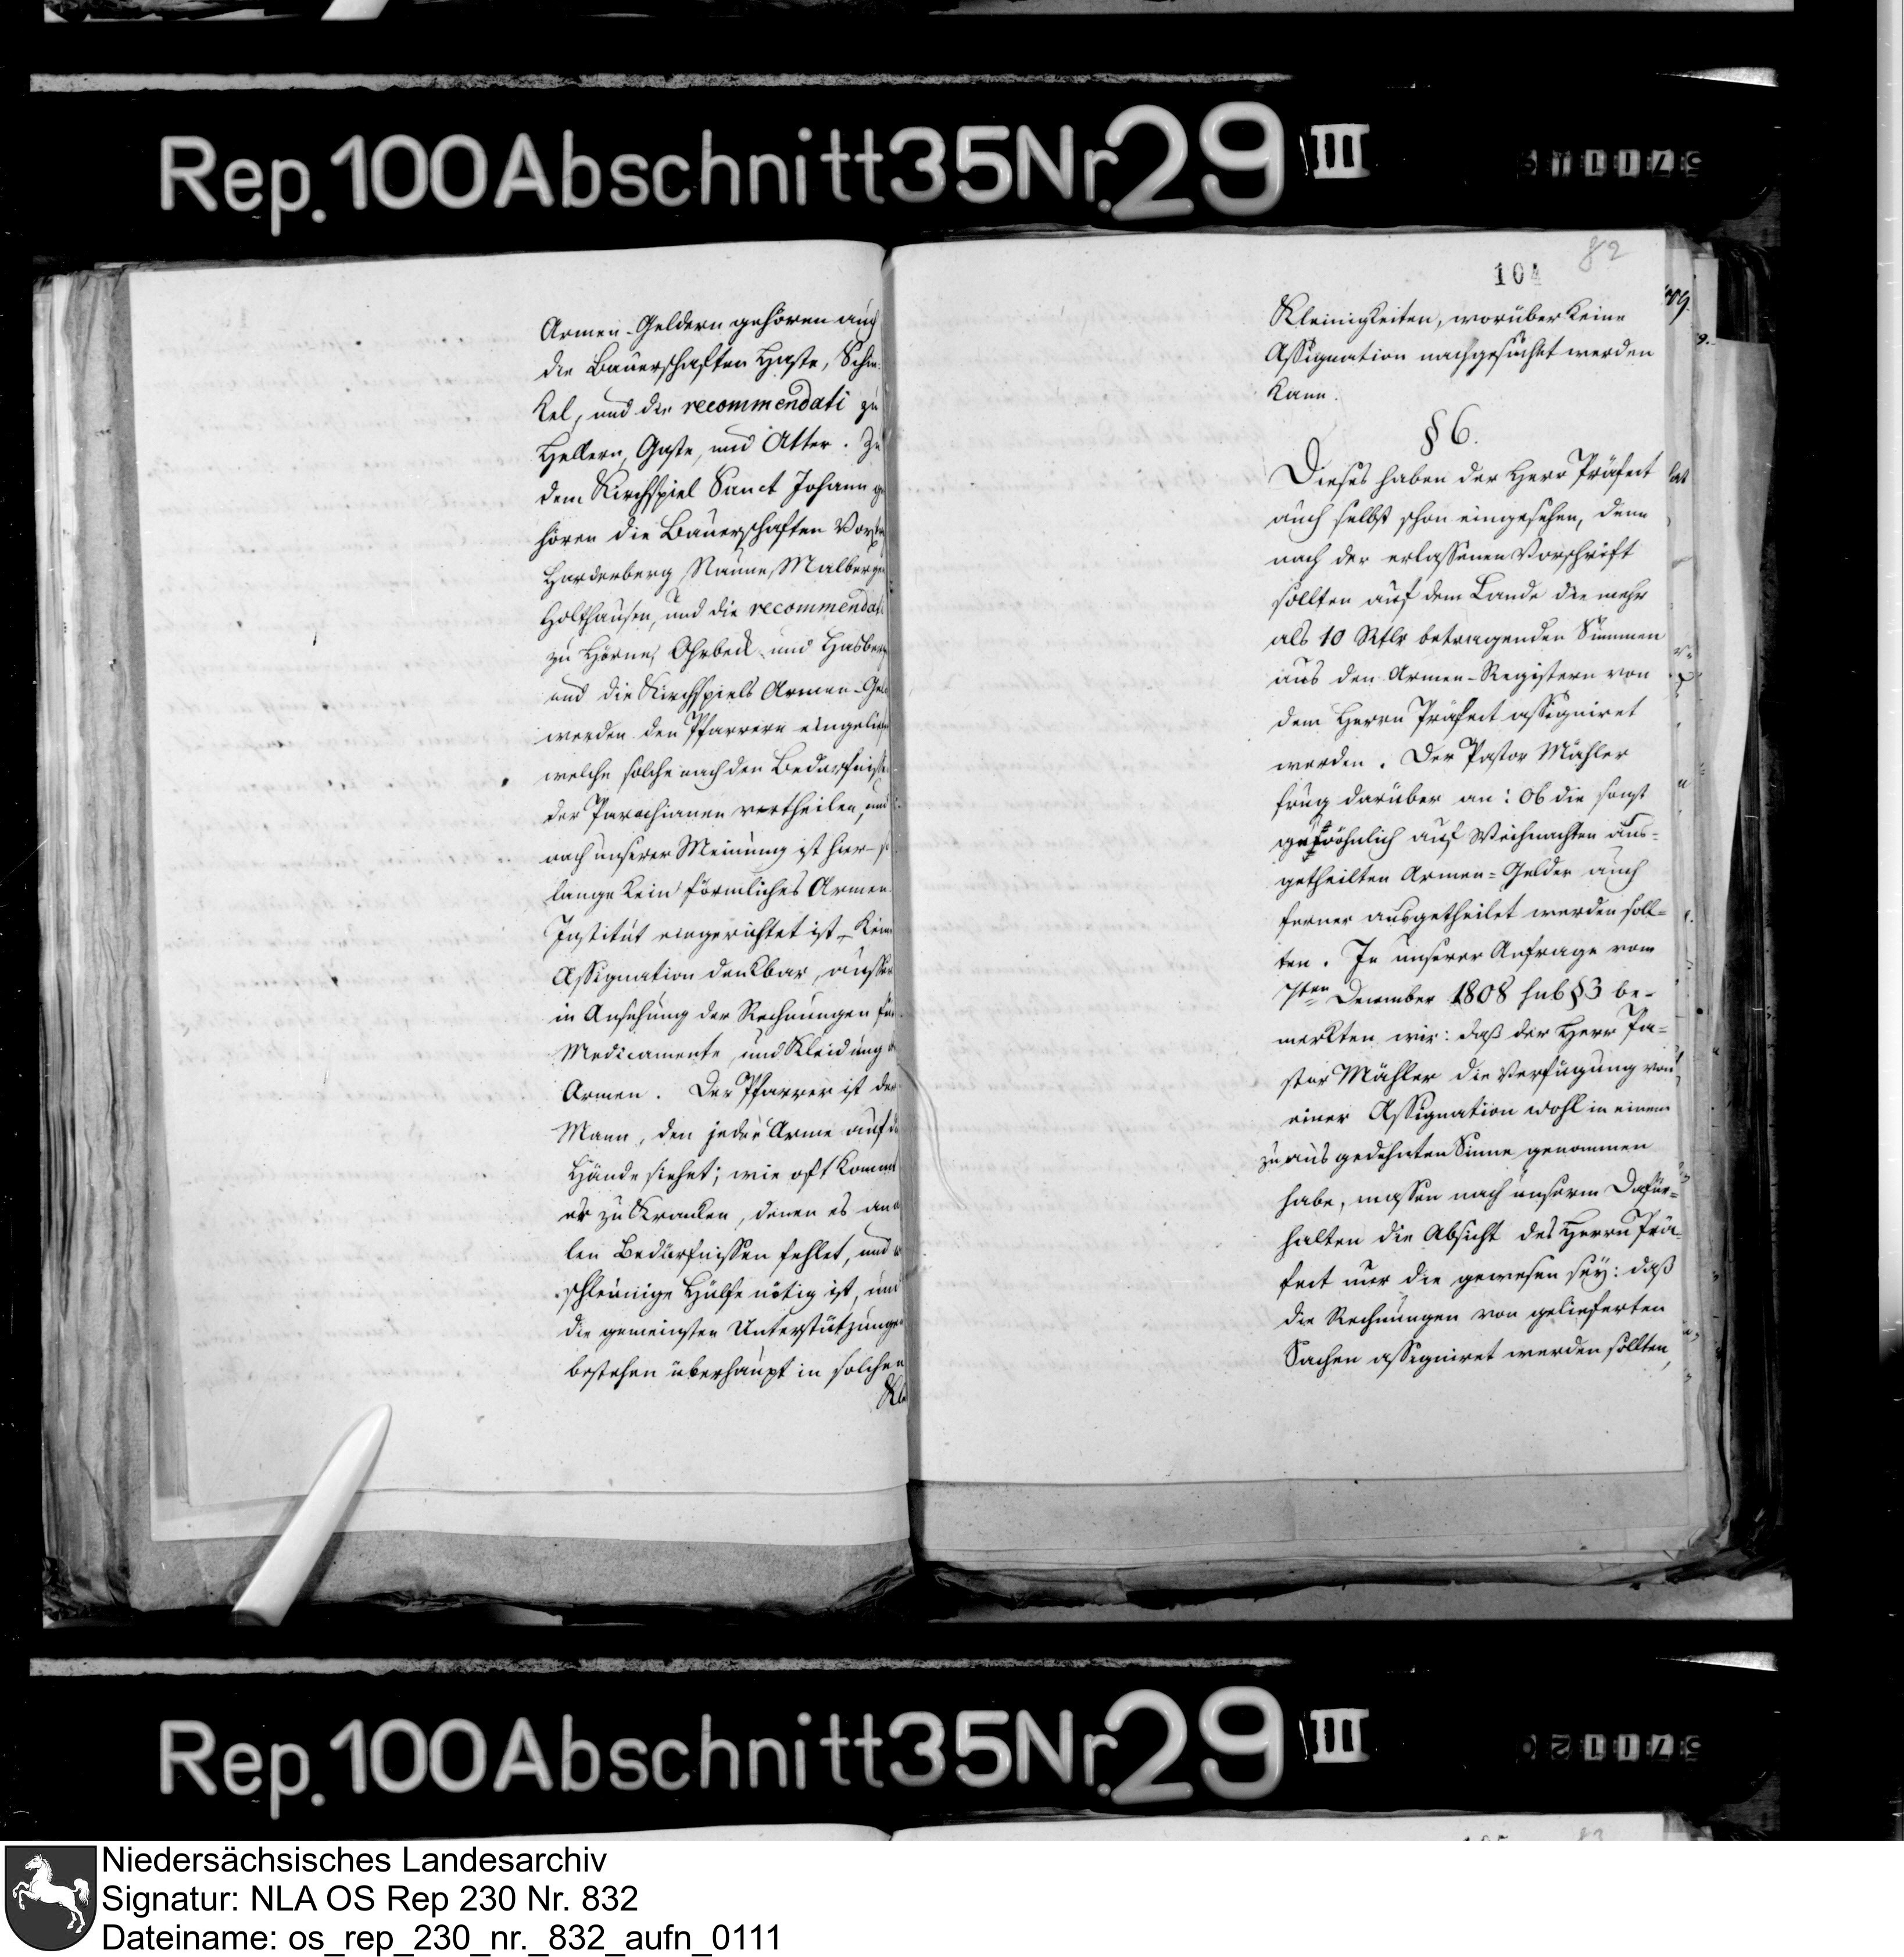 Rep. 100 Abschnitt 35 Nr. 29 III
Armen-Geldern gehören auch
die Bauerschaften Haste, Schin
kel, und die recommendati zu
Hellern, Gaste, und Atter. Zu
dem Kirchspiel Sanct Johann ge
hören die Bauerschaften Vox
Harderberg, Nahne, Malbergen
Holthausen, und die recommendati
zu Hörne, Ohrbeck und Hasberg
und die Kirchspiels Armen-Gel
werden den Pfarrern eingelie
welche solche nach den Bedürfnisse
der Parochianen vertheilen, und
nach unserer Meinung ist hier - so
lange kein förmliches Armen
Institut eingerichtet ist - keine
Assignation denkbar, ausser
in Ansehung der Rechnungen für
Medicamente und Kleidung
Armen. Der Pfarrer ist der
Mann, dem jeder Arme auf die
Hände siehet; wie oft kommt
er zu Kranken, denen es an al
len Bedürfnissen fehlet, und
schleunige Hülfe nötig ist, und
die gemeinsten Unterstützungen
bestehen überhaupt in solchen
Kle
104
82
Kleinigkeiten, worüber keine
Assignation nachgesuchet werden
kann.
§ 6.
Dieses haben der Herr Präfect
auch selbst schon eingesehen, denn
nach der erlassenen Vorschrift
sollten auf dem Lande die mehr
als 10 Rtlr betragenden Summen
aus den Armen-Registern von
dem Herrn Präfect assigniret
werden. Der Pastor Mähler
frug darüber an: Ob die sonst
gewöhnlich auf Weihnachten aus-
getheilten Armen-Gelder auch
ferner ausgetheilet werden soll-
ten. In unserer Anfrage vom
7ten December 1808 sub § 3 be-
merkten wir: daß der Herr Pa-
stor Mähler die Verfügung von
einer Assignation wohl in einem
zu ausgedehnten Sinne genommen
habe, massen nach unserm Dafür-
halten die Absicht des Herrn Prä-
fect nur die gewesen sey: daß
die Rechnungen von gelieferten
Sachen assigniret werden sollten,
Rep. 100 Abschnitt 35 Nr. 29 III
Niedersächsisches Landesarchiv
Signatur: NLA OS Rep 230 Nr. 832
Dateiname: os_rep_230_nr._832_aufn_0111